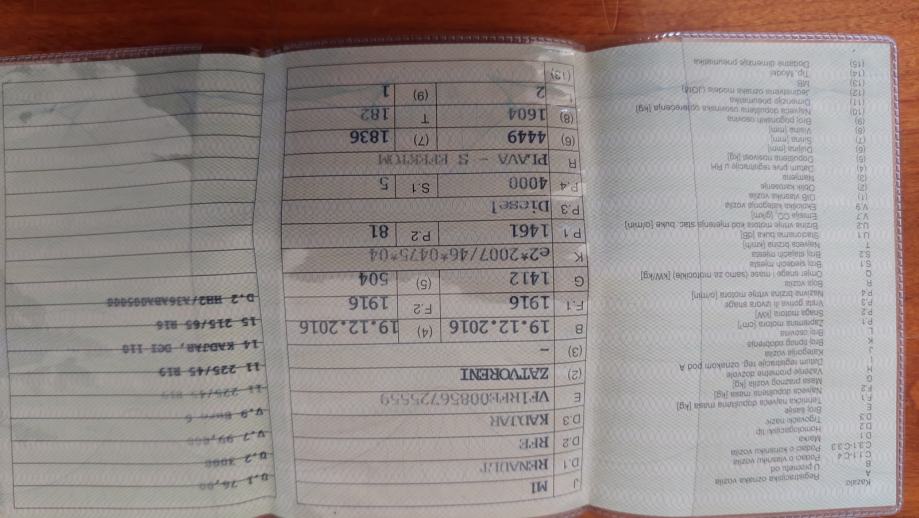 Kazalo
A Registracijska oznaka vozila
B U prometu od
C.1.1-C.4 Podaci o vlasniku vozila
C.3.1-C.3.3 Podaci o korisniku vozila
D.1 Marka
D.2 Homologacijski tip
D.3 Trgovački naziv
E Broj šasije
F.1 Tehnička najveća dopuštena masa [kg]
F.2 Najveća dopuštena masa [kg]
G Masa praznog vozila [kg]
H Važenje prometne dozvole
I Datum registracije reg. oznakom pod A
J Kategorija vozila
K Broj tipnog odobrenja
L Broj osovina
P.1 Zapremina motora [cm³]
P.2 Snaga motora [kW]
P.3 Vrsta goriva ili izvora snage
P.4 Nazivna brzina vrtnje motora [o/min]
R Boja vozila
Q Omjer snage i mase (samo za motocikle) [kW/kg]
S.1 Broj sjedećih mjesta
S.2 Broj stajaćih mjesta
T Najveća brzina [km/h]
U.1 Stacionarna buka [dB]
U.2 Brzina vrtnje motora kod mjerenja stac. buke [o/min]
V.7 Emisija CO₂ [g/km]
V.9 Ekološka kategorija vozila
(1) OIB vlasnika vozila
(2) Oblik karoserije
(3) Namjena
(4) Datum prve registracije u RH
(5) Dopuštena nosivost [kg]
(6) Duljina [mm]
(7) Širina [mm]
(8) Visina [mm]
(9) Broj pogonskih osovina
(10) Najveća dopuštena osovinska opterećenja [kg]
(11) Dimenzije pneumatika
(12) Jedinstvena oznaka modela (JOM)
(13) MB
(14) Tip, Model
(15) Dodatne dimenzije pneumatika
J M1
D.1 RENAULT
D.2 RFE
D.3 KADJAR
E VF1RFE00856725559
(2) ZATVORENI
(3) -
B 19.12.2016 (4) 19.12.2016
F.1 1916 F.2 1916
G 1412 (5) 504
K e2*2007/46*0475*04
P.1 1461 P.2 81
P.3 Diesel
P.4 4000 S.1 5
R PLAVA - S EFEKTOM
(6) 4449 (7) 1836
(8) 1604 T 182
L 2 (9) 1
(13)
U.1 76,00
U.2 3000
V.7 99,000
V.9 Euro 6
11 225/45 R19
11 225/45 R19
14 KADJAR, DCI 110
15 215/65 R16